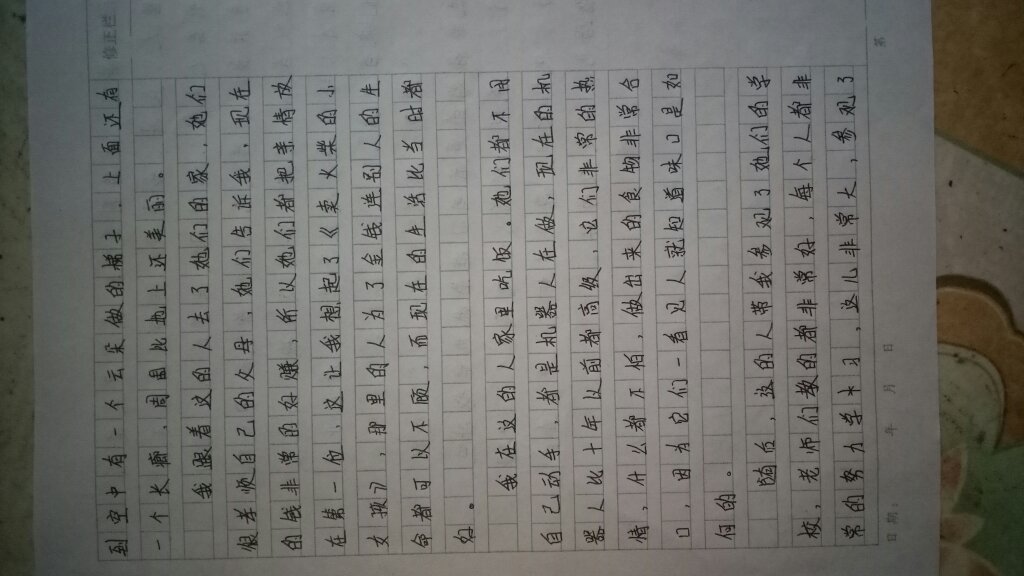 修正栏
第
到空中有一个云朵做的梯子，上面还有
一个长廊，周围比地上还美的。
我跟着这的人去了她们的家，她们
很孝顺自己的父母，她们告诉我，现在
的钱非常的好赚，所以她们都把亲情放
在第一位，这让我想起了《卖火柴的小
女孩》，那里的人为了金钱连别人的生
命都可以不顾，而现在的生活比当时都
好。
我在这的人家里吃饭。她们都不用
自己动手，都是机器人在做，现在的机
器人比十年以前都高级，它们非常的热
情，什么都不怕，做出来的食物非常合
口，因为它们一看见人就知道味口是如
何的。
随后，这的人带我参观了她们的学
校，老师们教的都非常好，每个人都非
常的努力学习，这儿非常大，参观了
日期： 年 月 日